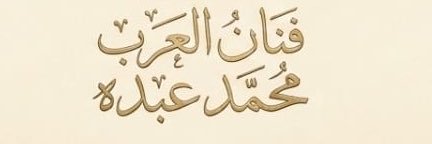 فَنَانُ العَرَب
مُحمَّد عبده